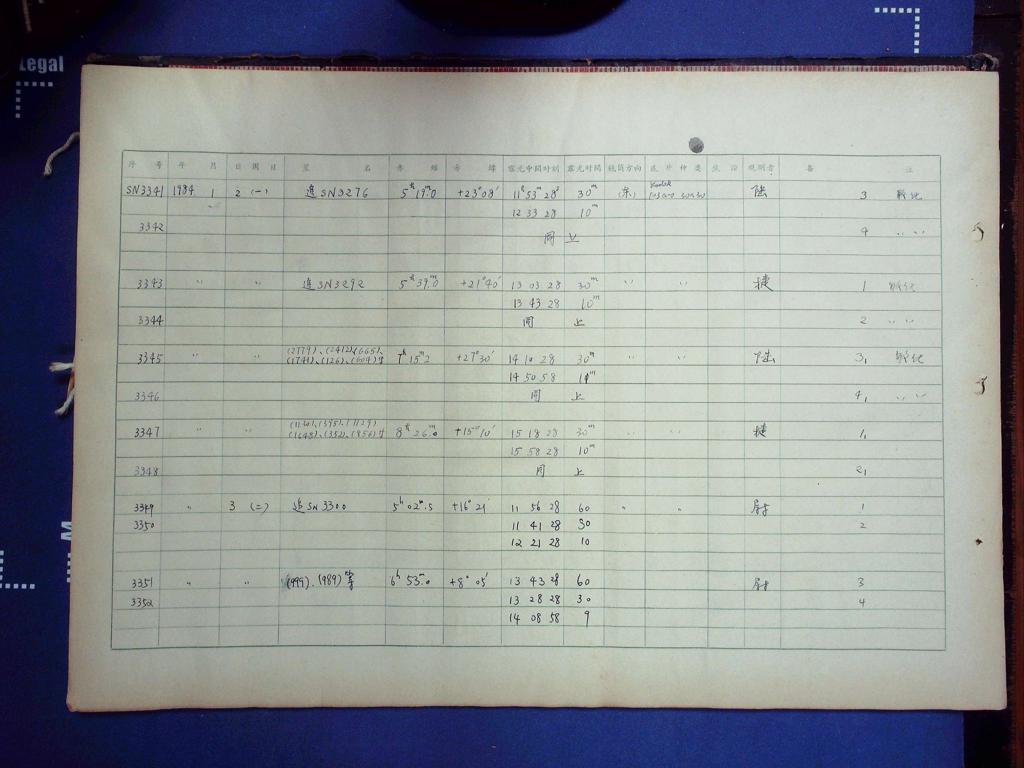 Legal
序 号 年 月 日 週 日 星 名 赤 經 赤 緯 露光中間时刻 露光时间 鏡筒方向 底片种类 觀測者 备 注
SN3341 1984 1 2 (一) 追SN3276 5ʰ19ᵐ.0 +23°08′ 11ʰ53ᵐ28ˢ 30ᵐ (东) Kodak 陆 3 敏化
12 33 28 10ᵐ
3342 同 上 4 〃 〃
3343 〃 〃 追SN3292 5ʰ39ᵐ.0 +21°40′ 13 03 28 30ᵐ 〃 〃 捷 1 敏化
13 43 28 10ᵐ
3344 同 上 2 〃 〃
(2779)、(2412)、(665)、
3345 〃 〃 (1741)、(126)、(604)廿 7ʰ15ᵐ2 +27°30′ 14 10 28 30ᵐ 〃 〃 陆 3, 敏化
14 50 58 14ᵐ
3346 同 上 4, 〃 〃
3347 〃 〃 (1648)、(352)、(856)廿 8ʰ26ᵐ.0 +15°10′ 15 18 28 30ᵐ 〃 〃 捷 1,
15 58 28 10ᵐ
3348 同 上 2,
3349 〃 3 (二) 追SN3300 5ʰ02ᵐ.5 +16°21′ 11 56 28 60 〃 〃 尉 1
3350 11 41 28 30 2
12 21 28 10
3351 〃 〃 (999)、(989)等 6ʰ53ᵐ.0 +8°05′ 13 43 28 60 尉 3
3352 13 28 28 30 4
14 08 58 9